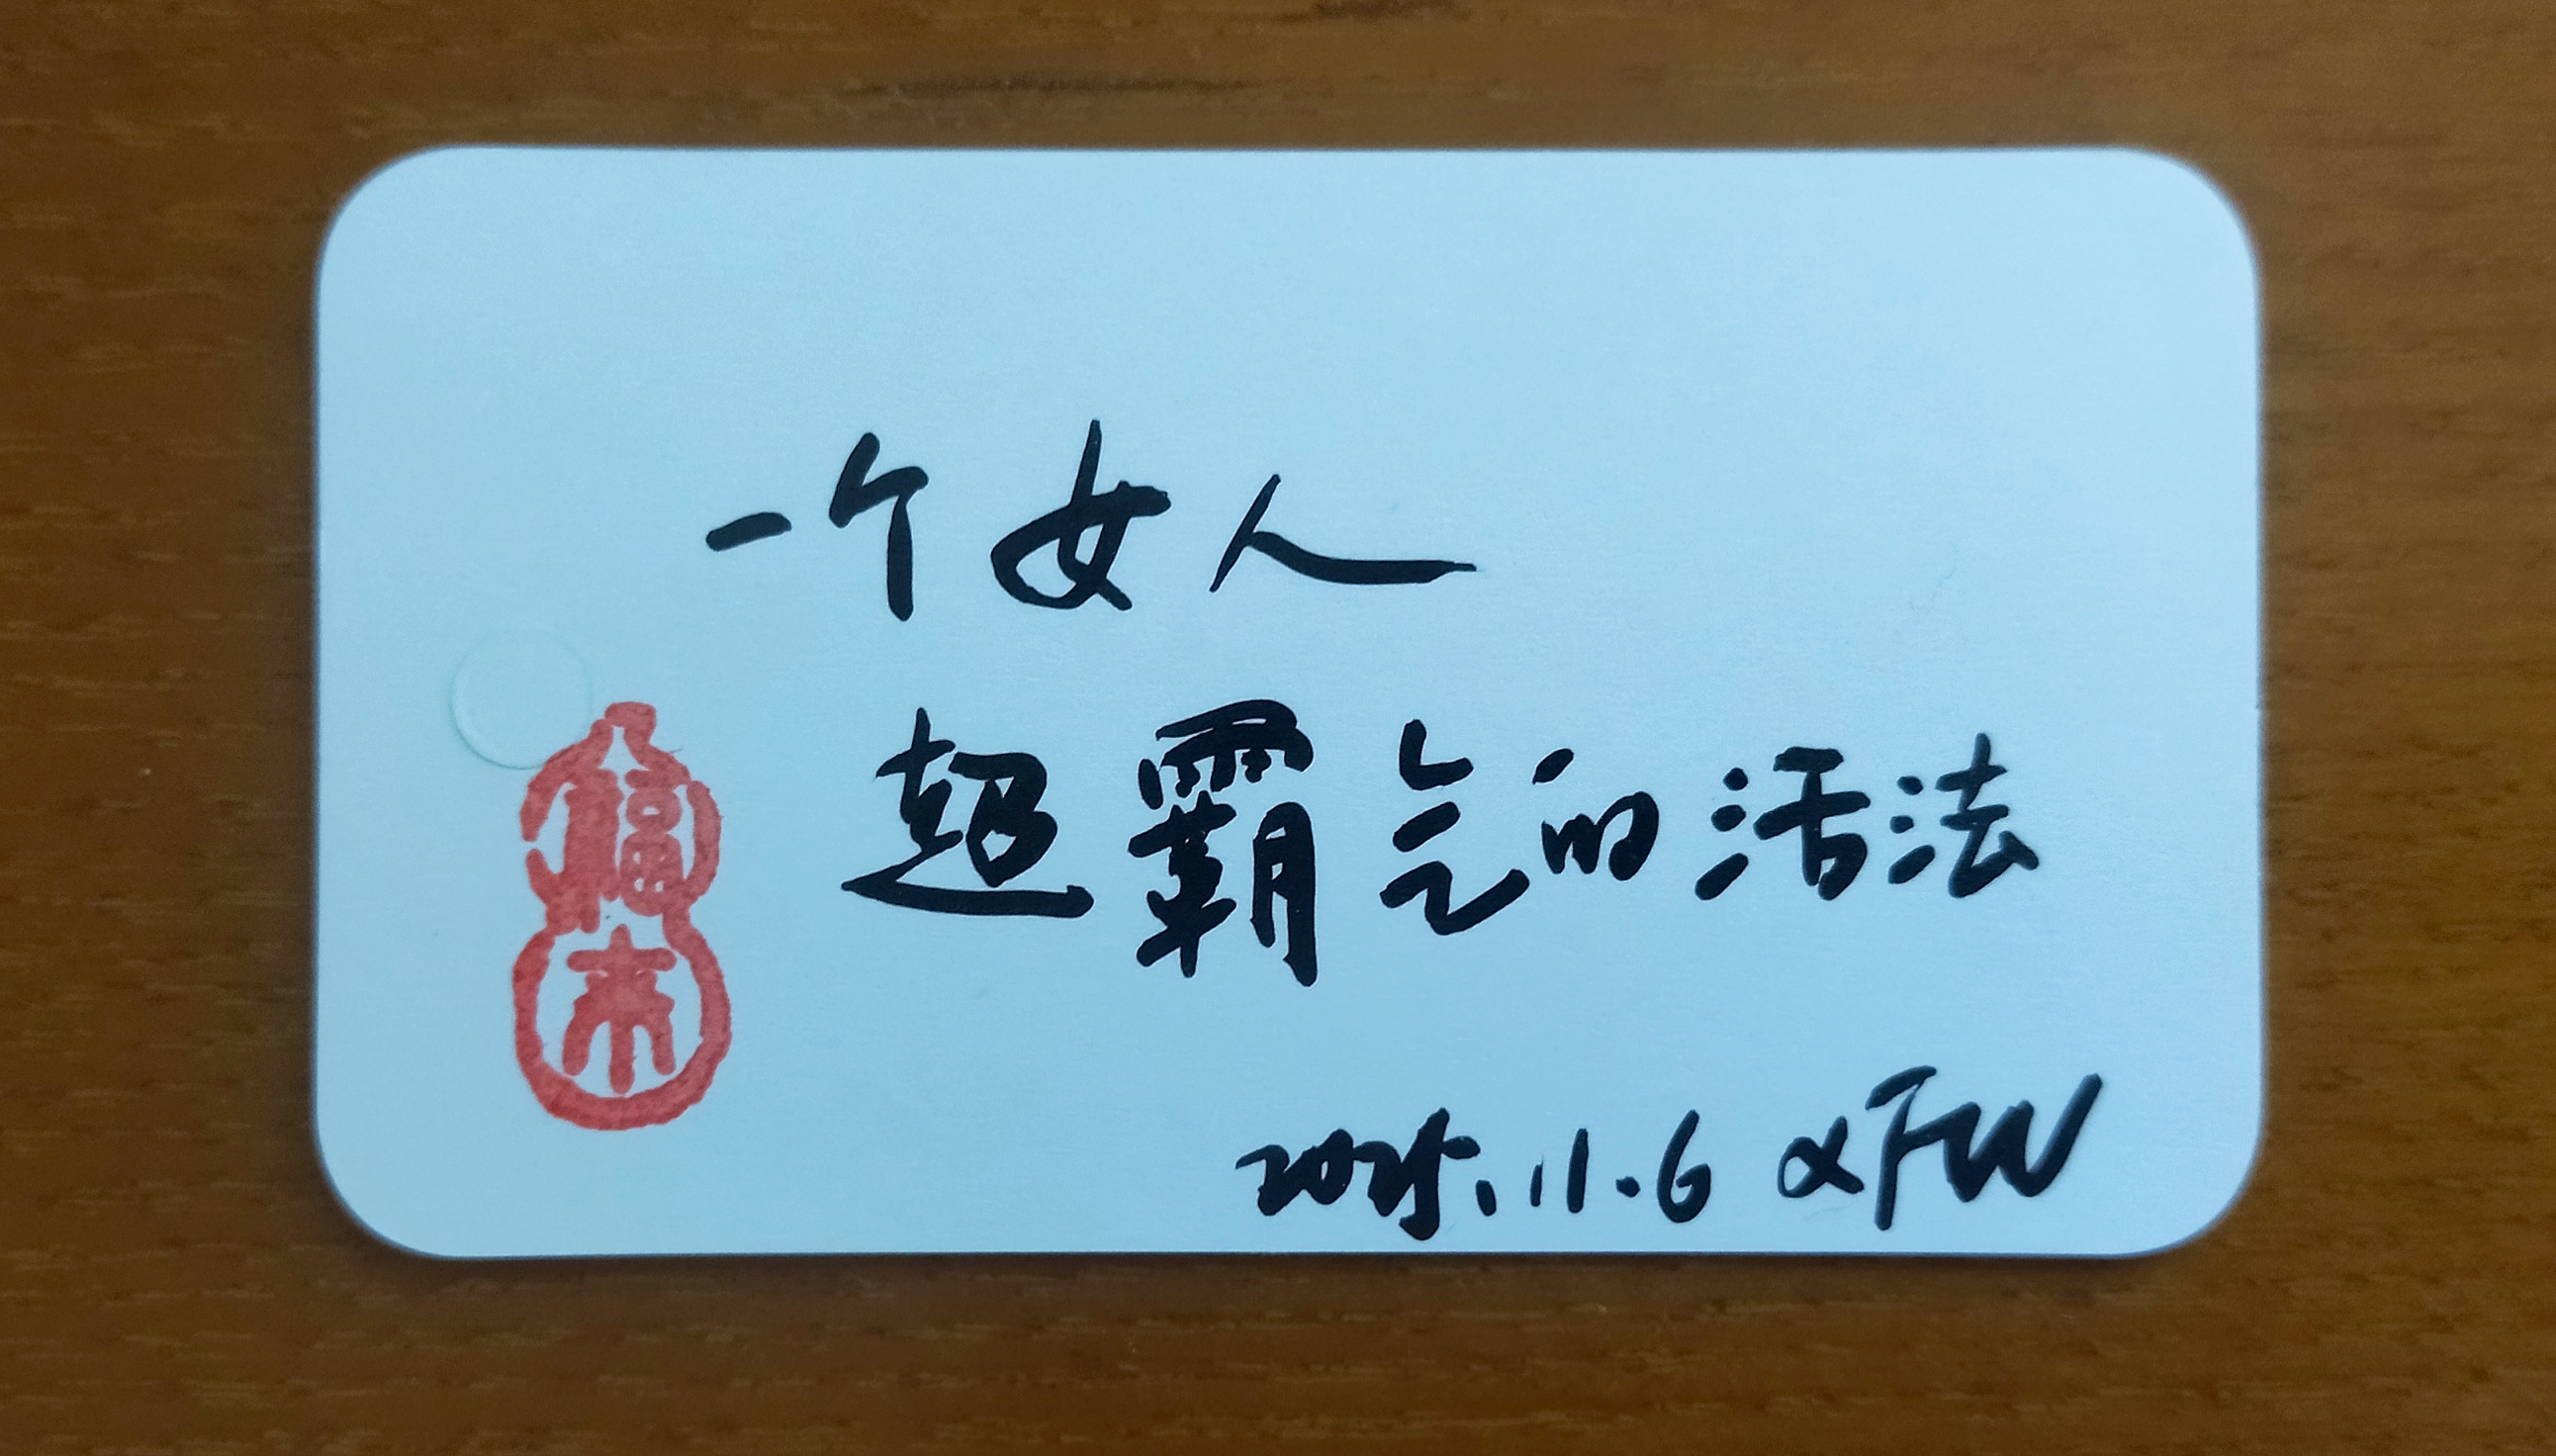 一个女人
超霸气的活法
福来
2025.11.6 XFW